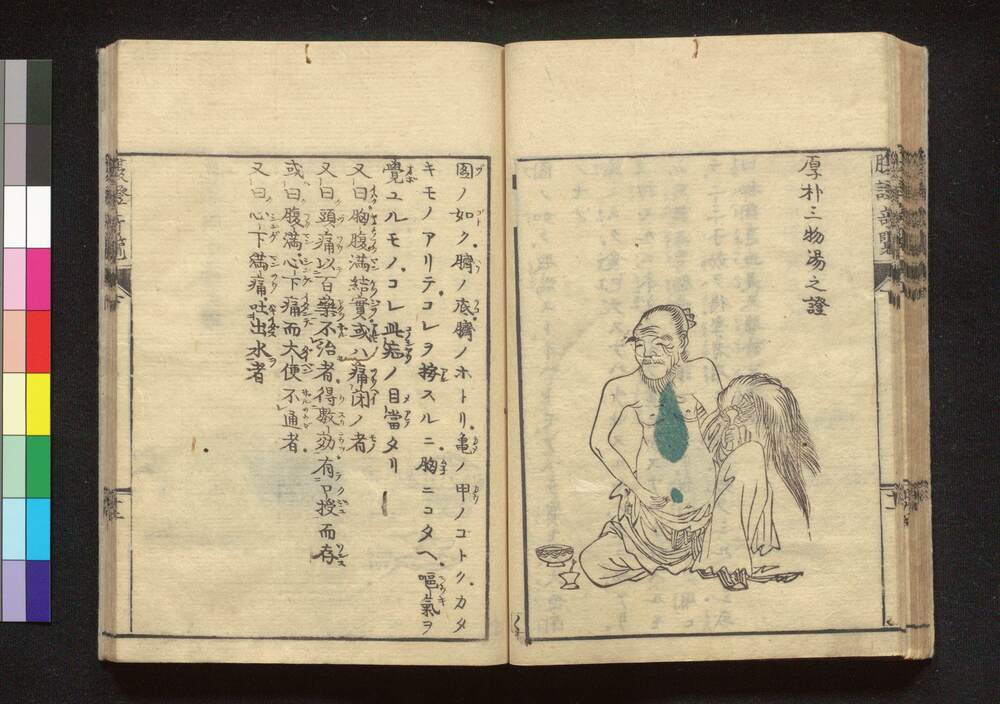 厚朴三物湯之證
圖ノ如ク臍ノ底臍ノホトリ亀ノ甲ノコトクカタ
キモノアリテコレヲ按スルニ胸ニコタヘ嘔氣ヲ
覺ユルモノコレ此症ノ目當タリ
又曰胸腹滿結實或ハ痛閉ノ者
又曰頭痛以百藥不治者得數効有口授而存
或曰腹滿心下痛而大便不通者
又曰心下滿痛吐出水者